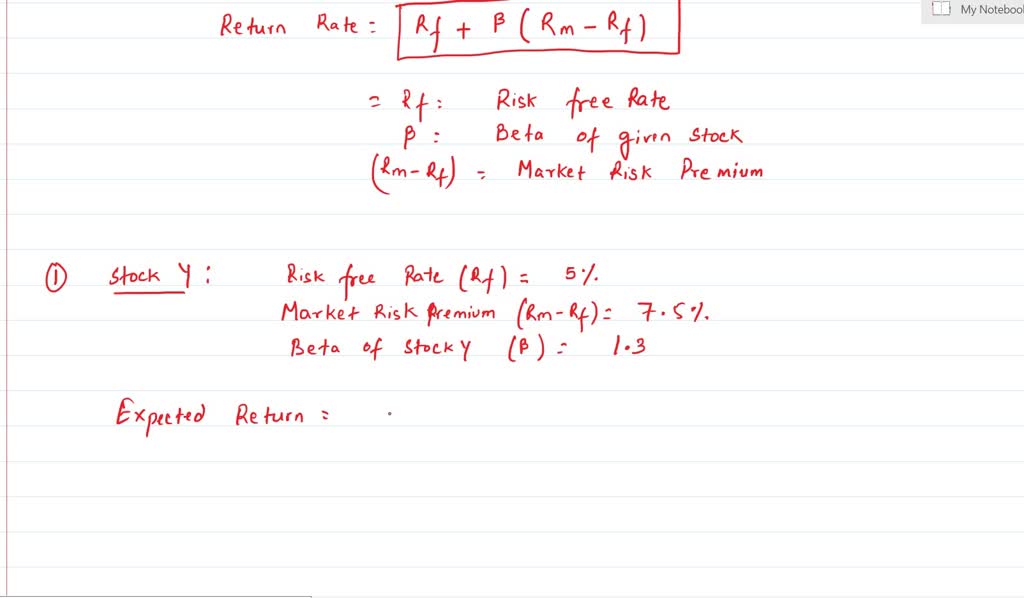 My Notebook
Return Rate = Rf + β (Rm - Rf)
= Rf : Risk free Rate
β : Beta of given stock
(Rm - Rf) = Market Risk Premium
① Stock Y : Risk free Rate (Rf) = 5%.
Market Risk Premium (Rm - Rf) = 7.5%.
Beta of Stock Y (β) = 1.3
Expected Return =